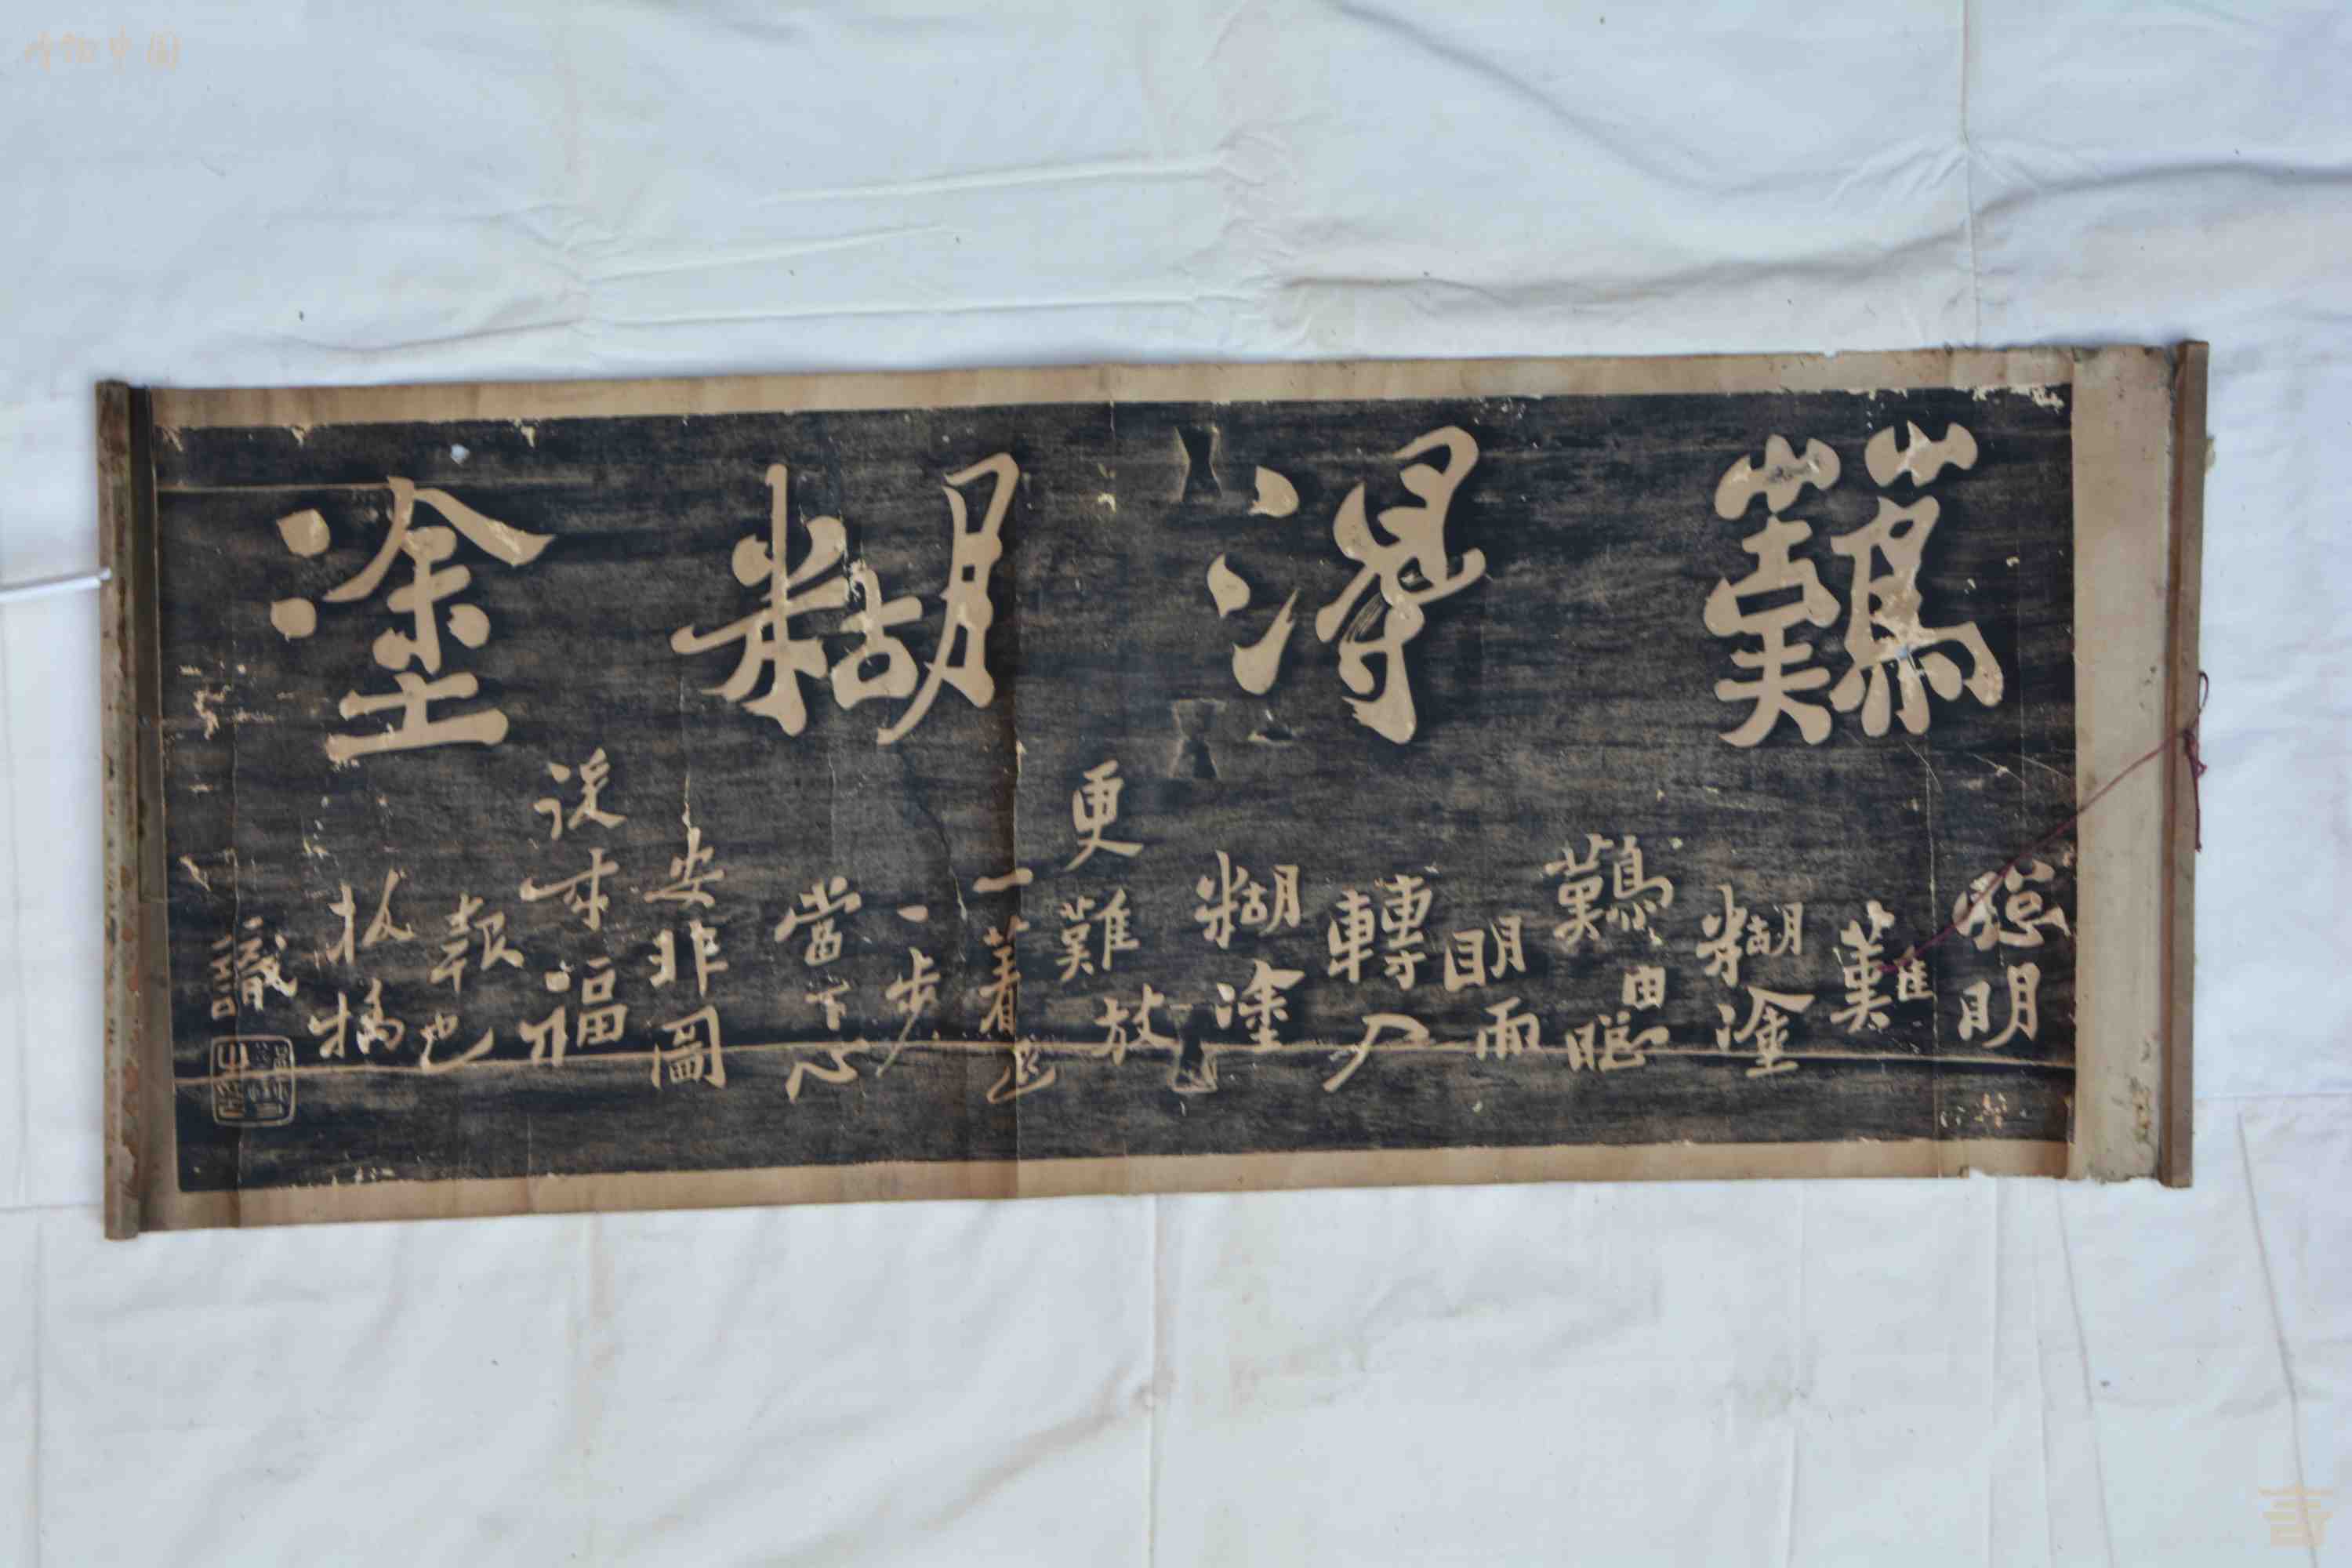 難得糊塗
聰明
難
糊塗
難由聰
明而
轉入
糊塗
更難放
一着退
一步
當下心
安非圖
後來福
報也
板橋
識